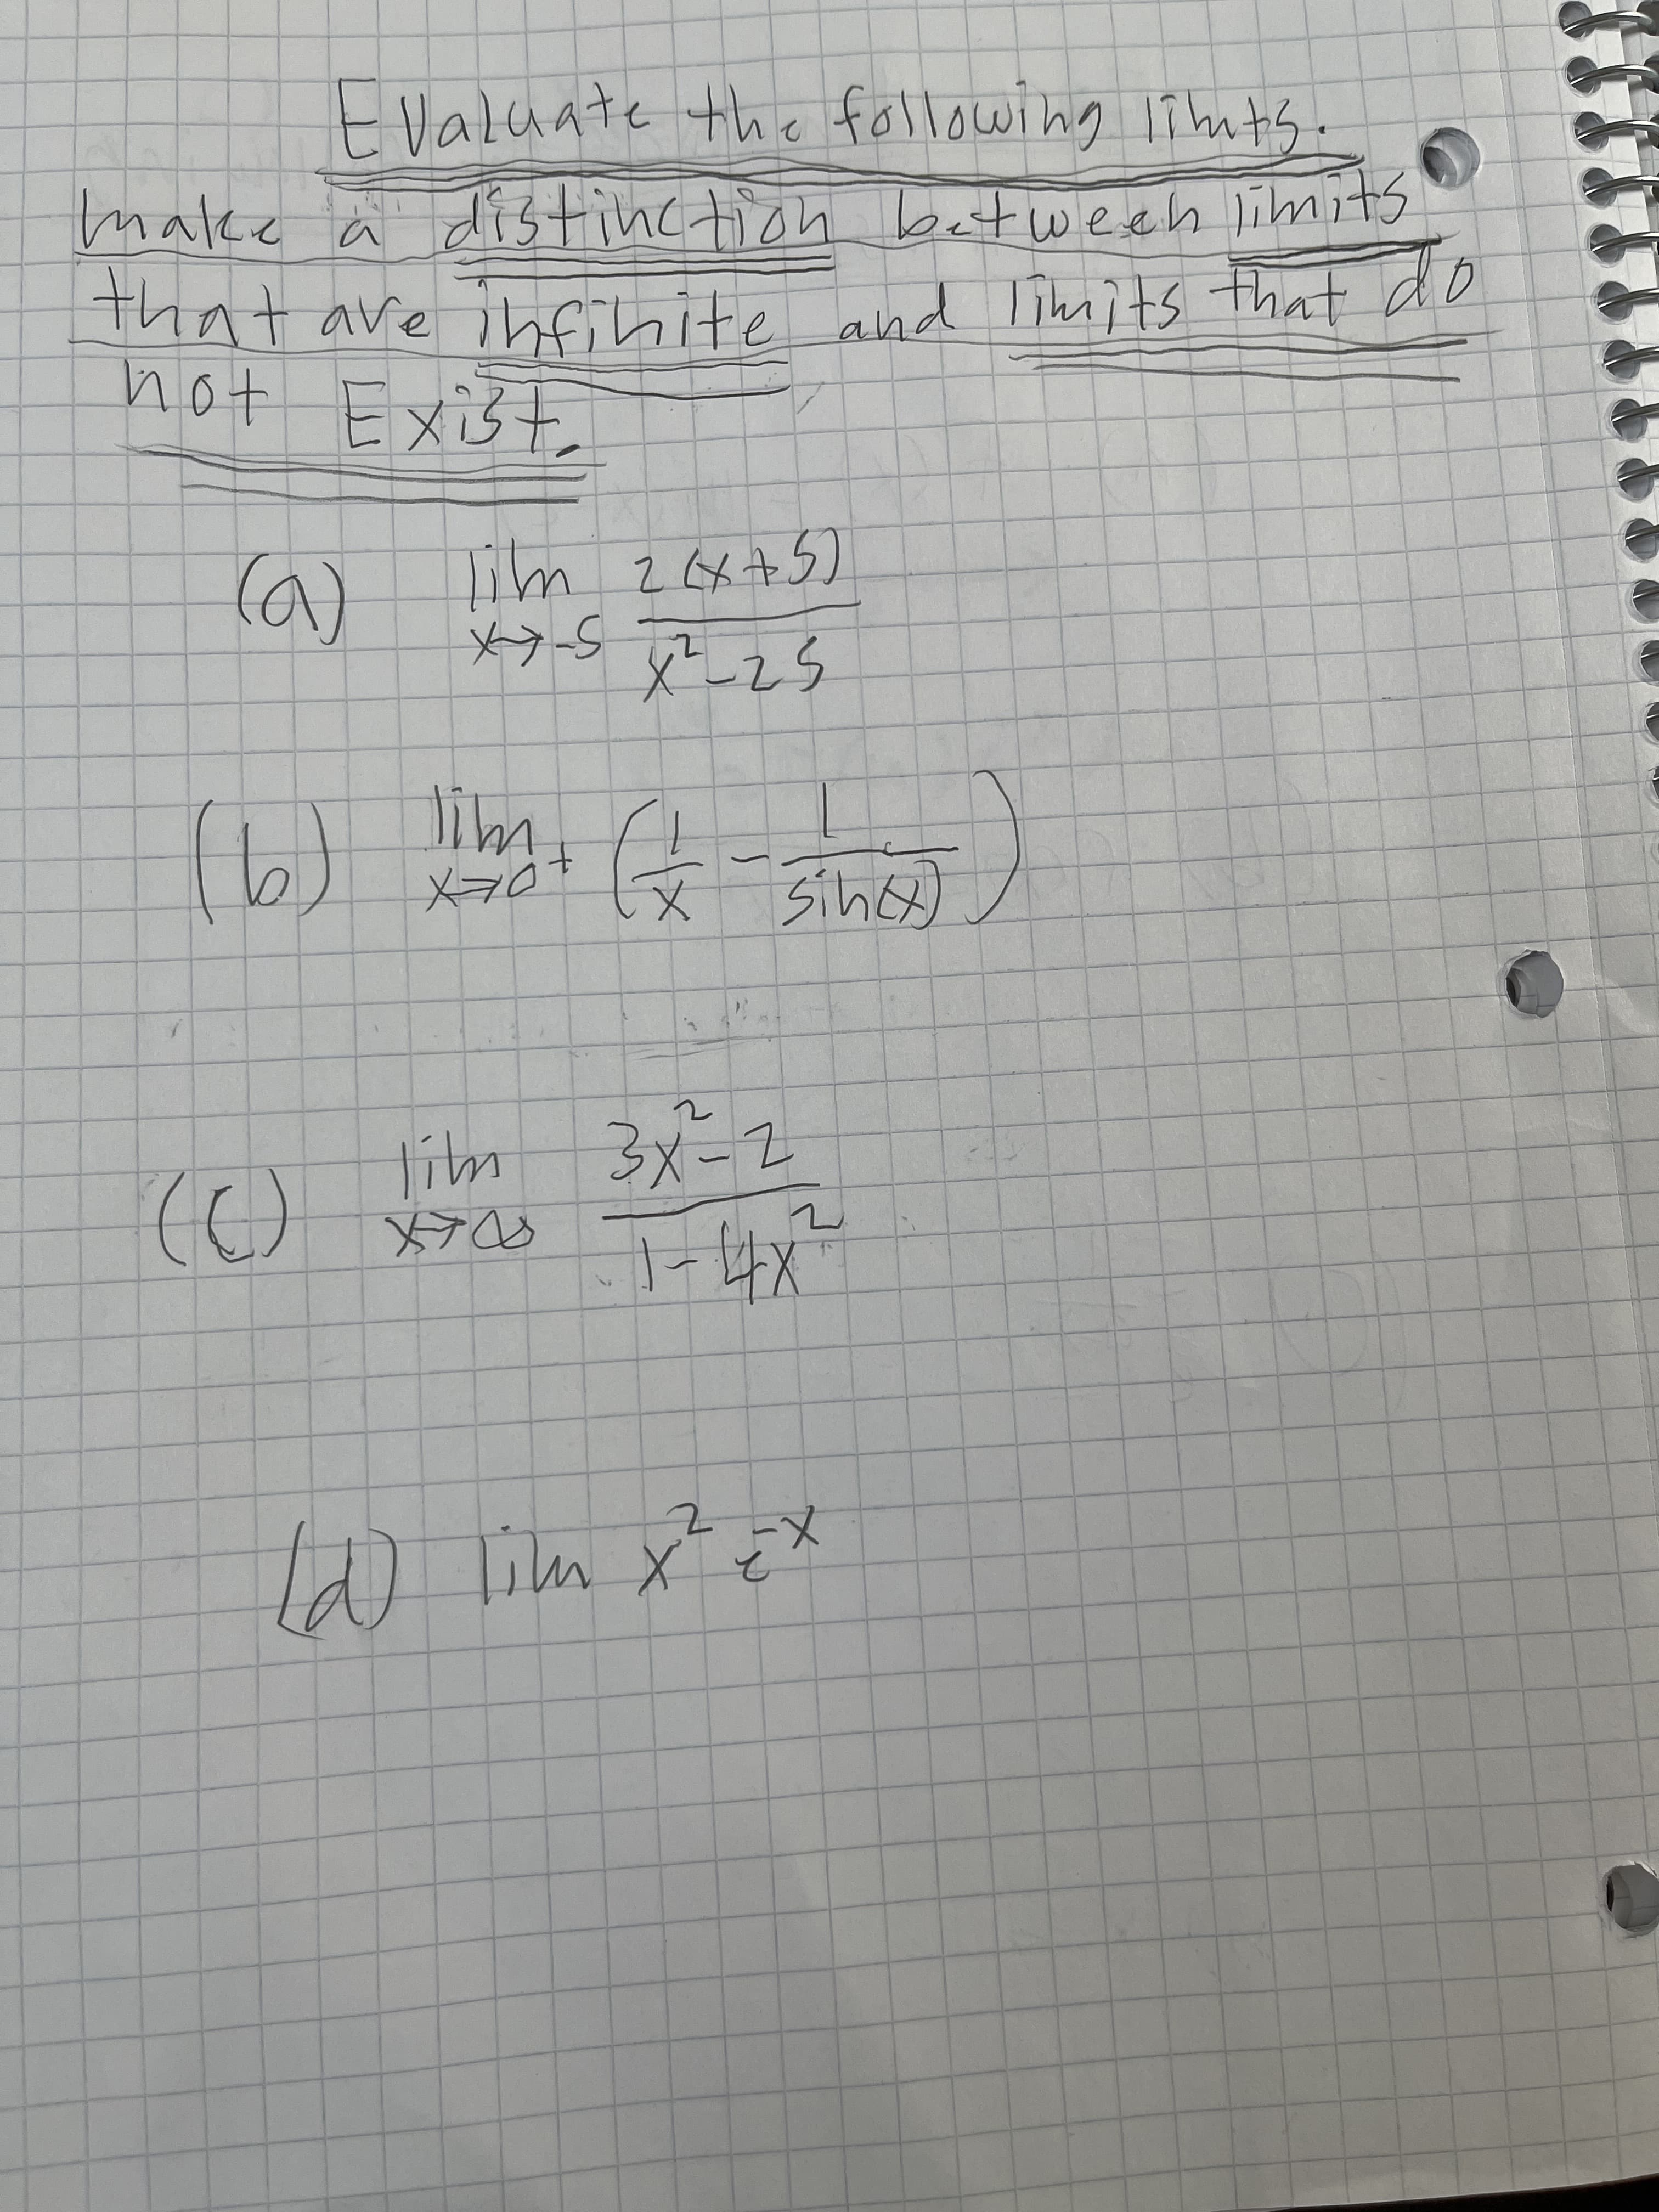 Evaluate the following limts.
make a distinction between limits
that are infinite and limits that do
not Exist.
(a) lim x→-5 2(x+5) / x²-25
(b) lim x→0⁺ (1/x - 1/sin(x))
(c) lim x→∞ 3x²-2 / 1-4x²
(d) lim x² e⁻ˣ